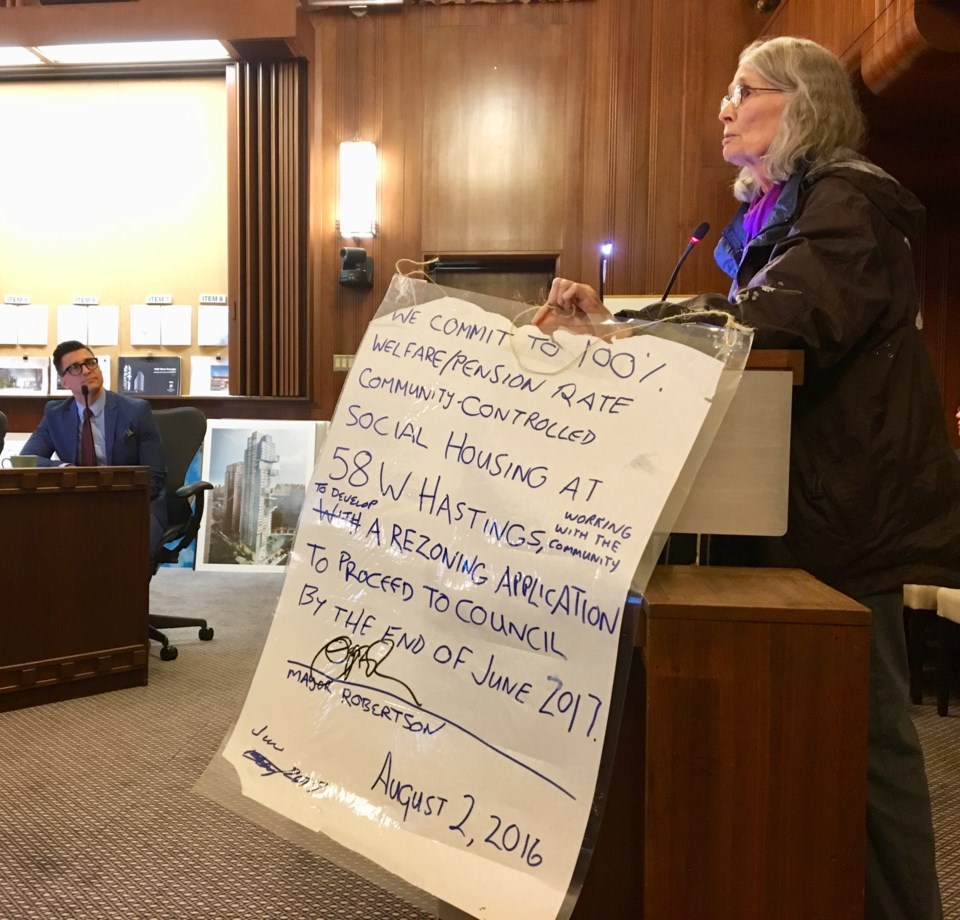 ITEM 6
ITEM 7
ITEM 8
WE COMMIT TO 100%
WELFARE/PENSION RATE
COMMUNITY-CONTROLLED
SOCIAL HOUSING AT
58 W HASTINGS, WORKING WITH THE COMMUNITY
TO DEVELOP
WITH A REZONING APPLICATION
TO PROCEED TO COUNCIL
BY THE END OF JUNE 2017.
MAYOR ROBERTSON
AUGUST 2, 2016